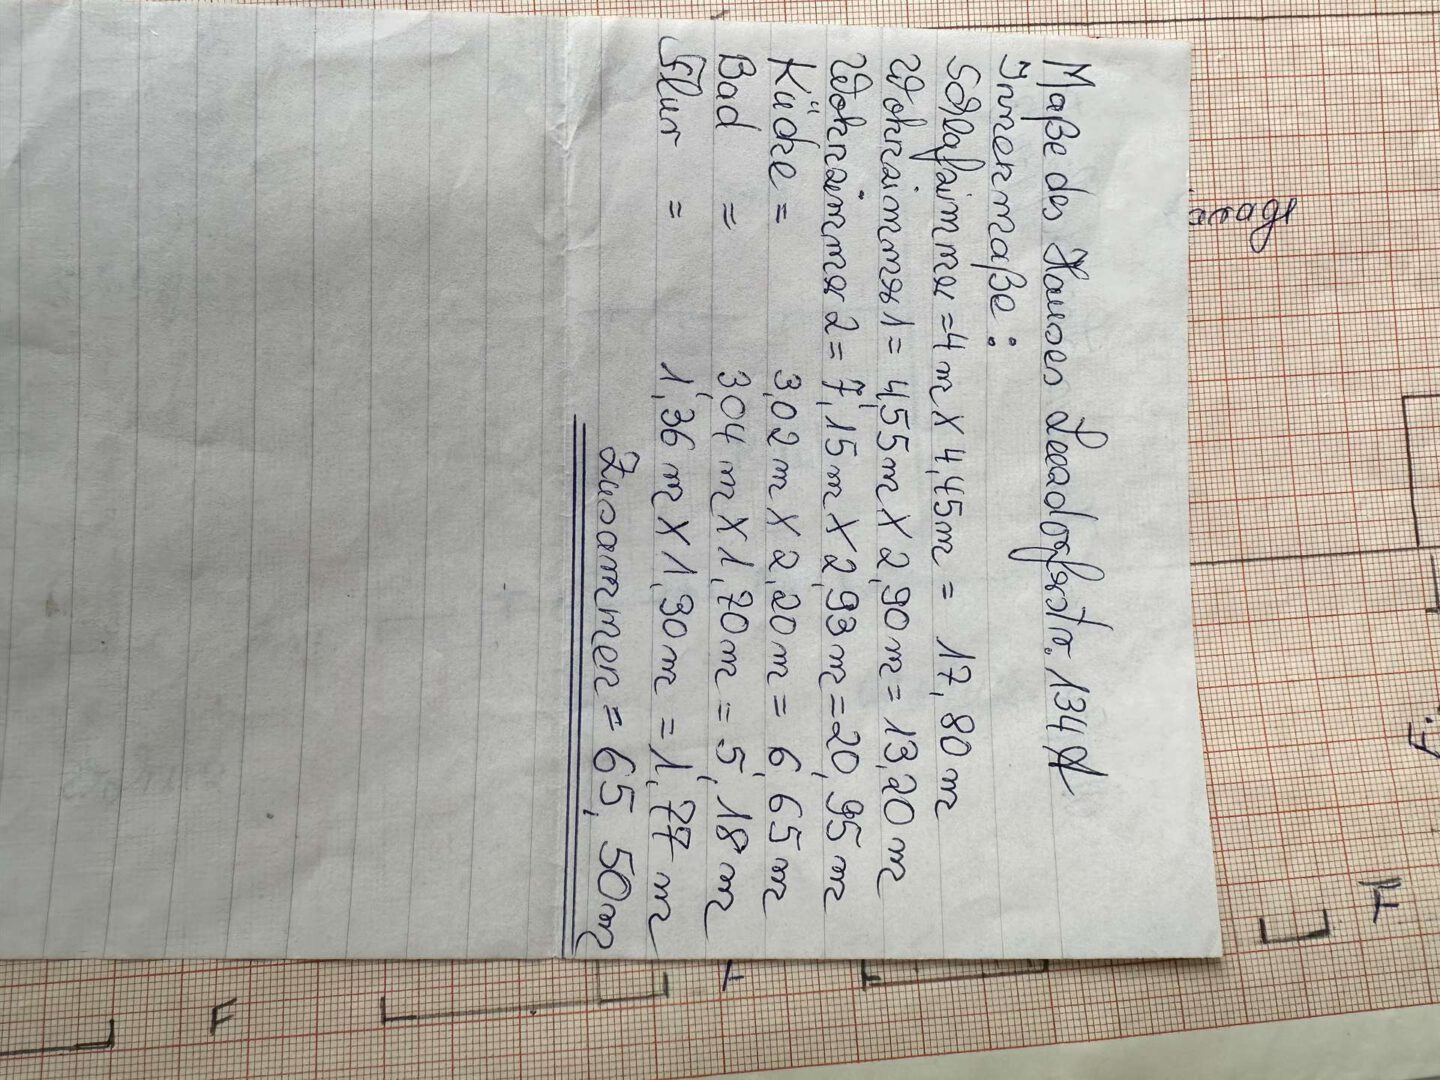 Maße des Hauses Leadorfstr. 134 A
Innenmaße:
Schlafzimmer = 4 m X 4,45 m = 17,80 m
Wohnzimmer 1 = 4,55 m X 2,90 m = 13,20 m
Wohnzimmer 2 = 7,15 m X 2,93 m = 20,95 m
Küche = 3,02 m X 2,20 m = 6,65 m
Bad = 3,04 m X 1,70 m = 5,18 m
Flur = 1,36 m X 1,30 m = 1,77 m
Zusammen = 65,50 m
F